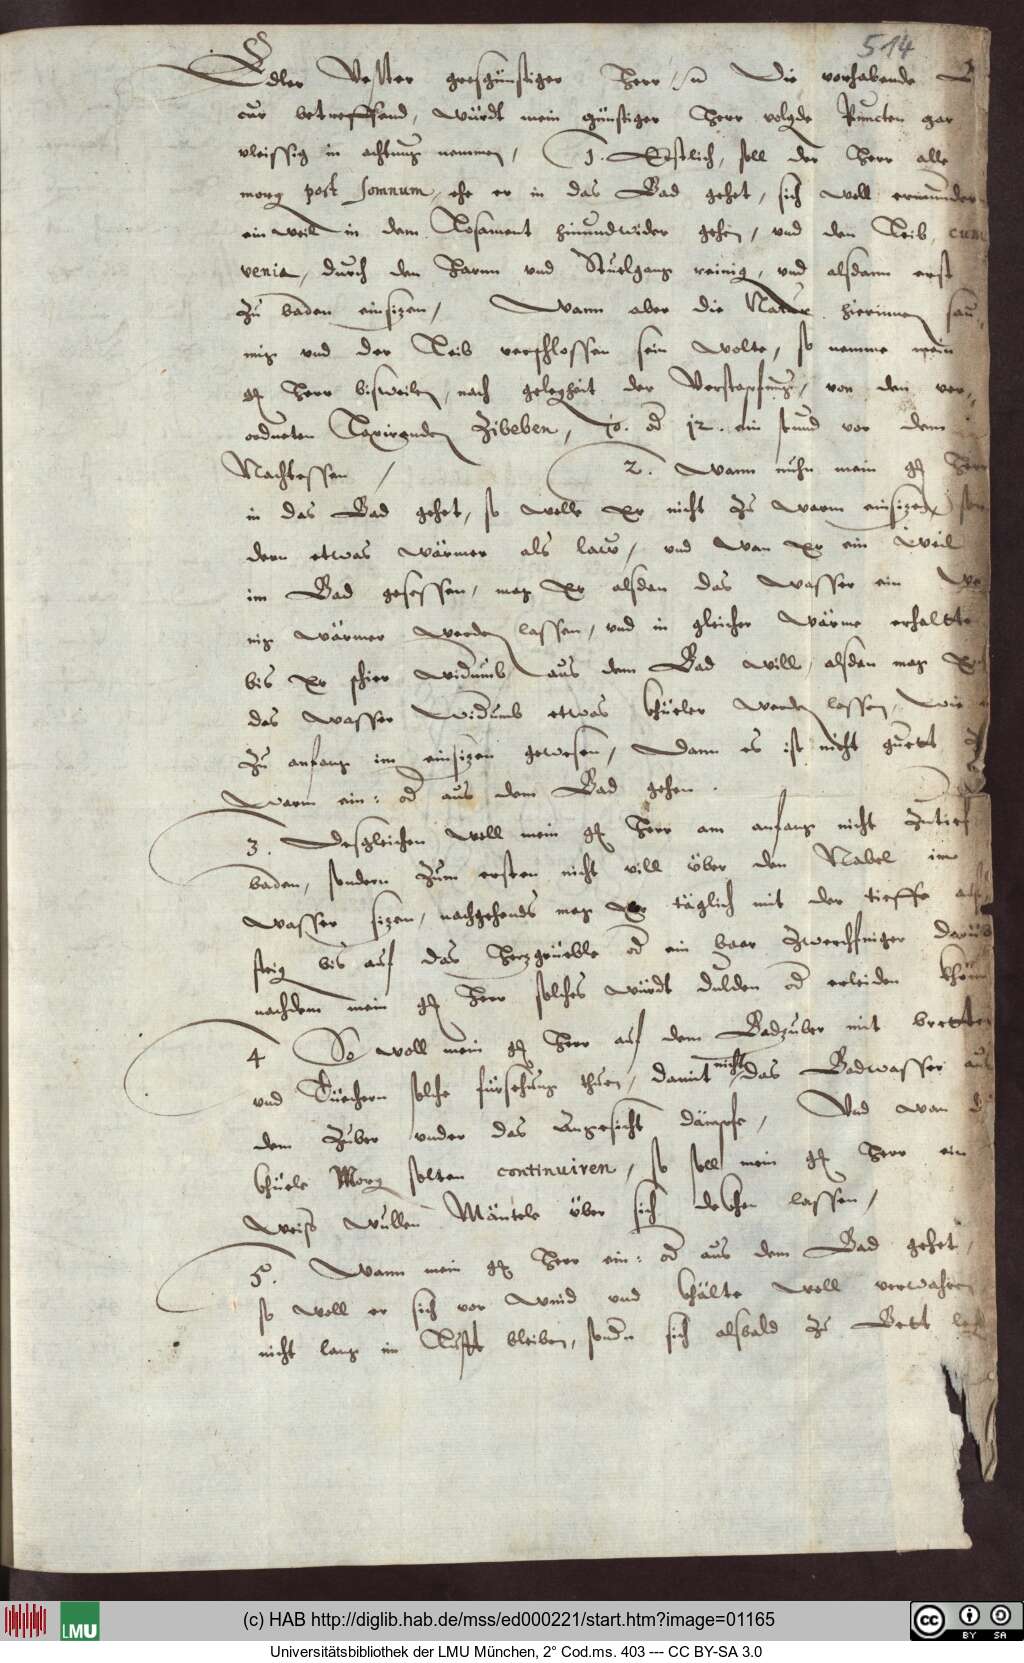 514
Edler Vester grosgünstiger Herr / Die vorhabende
cur betreffend, würdt mein günstiger Herr volgde Puncten gar
vleissig in achtung nemmen, 1. Erstlich, soll der Herr alle
morg post somnum, ehe er in das Bad gehet, sich woll ermunder
ein weil in dem Losament hinundwider gehen, und den Leib, cum
venia, durch den Harnn und Stuelgang reinig, und alsdann erst
zu baden einsizen, Wann aber die Natur hierinnen sau
mig und der Leib verschlossen sein wolte, so nemme mein
g. Herr bisweilen, nach gelegheit der Verstopfung, von den ver,,
ordneten Laxirenden Zibeben, 10. od 12. ein stund vor dem
Nachtessen / 2. Wann nuhn mein g. Herr
in das Bad gehet, so wolle Er nicht zu warm einsizen, son
dern etwas wärmer als law, und wan Er ein weil
im Bad gesessen, mag Er alsdan das wasser ein we
nig wärmer werden lassen, und in gleicher wärme erhaltten
bis Er schier widumb aus dem Bad will, alsdan mag Er
das wasser widumb etwas khüeler werden lassen, wie
zu anfang im einsizen gewesen, Dann es ist nicht guett
warm ein: od aus dem Bad gehen.
3. Desgleichen woll mein g. Herr am anfang nicht zutief
baden, sondern zum ersten nicht vill über den Nabel im
wasser sizen, nachgehends mag Er täglich mit der tieffe
steig bis auf das Herzgrüeble od ein baar zwerchfinger darüb
nachdem mein g. Herr solches würdt dulden od erleiden khön
4 So woll mein g. Herr auf dem Badzuber mit brettern
und Tüechern solche fürsehung thuen, damit nicht das Badwasser aus
dem Zuber under das Angesicht dämpfe, Und wan d
khüele Morg solten continuiren, so soll mein g. Herr ein
weiß wullen Mäntele über sich dekhen lassen,
5. Wann mein g. Herr ein: od aus dem Bad gehet,
so woll er sich vor wind und khälte woll verwahren
nicht lang im Lufft bleiben, sondn sich alsbald zu Bett
(c) HAB http://diglib.hab.de/mss/ed000221/start.htm?image=01165
LMU
cc BY SA
Universitätsbibliothek der LMU München, 2° Cod.ms. 403 --- CC BY-SA 3.0